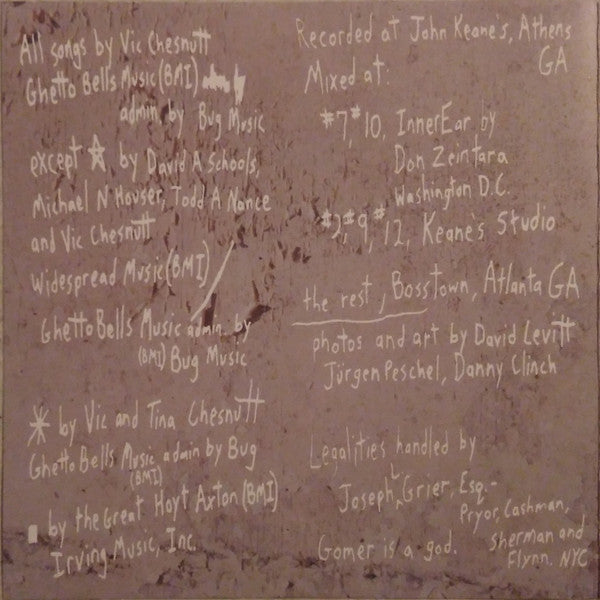 All songs by Vic Chesnutt
Ghetto Bells Music (BMI)
admin by Bug Music
except ☆ by David A Schools,
Michael N Houser, Todd A Nance
and Vic Chesnutt
Widespread Music (BMI)
Ghetto Bells Music admin. by
(BMI) Bug Music
* by Vic and Tina Chesnutt
Ghetto Bells Music admin by Bug
(BMI)
■ by the Great Hoyt Axton (BMI)
Irving Music, Inc.
Recorded at John Keane's, Athens
GA
Mixed at:
#7, #10, InnerEar by
Don Zeintara
Washington D.C.
#2, #9, #12, Keane's Studio
the rest, Bosstown, Atlanta GA
photos and art by David Levitt
Jürgen Peschel, Danny Clinch
Legalities handled by
Joseph L Grier, Esq.-
Pryor, Cashman,
Sherman and
Flynn. NYC
Gomer is a god.